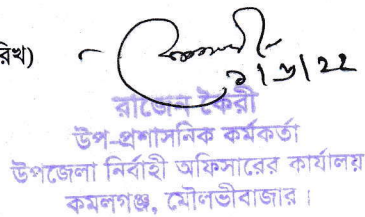 রিখ)
১/৬/২২
রাজেন কৈরী
উপ-প্রশাসনিক কর্মকর্তা
উপজেলা নির্বাহী অফিসারের কার্যালয়
কমলগঞ্জ, মৌলভীবাজার।